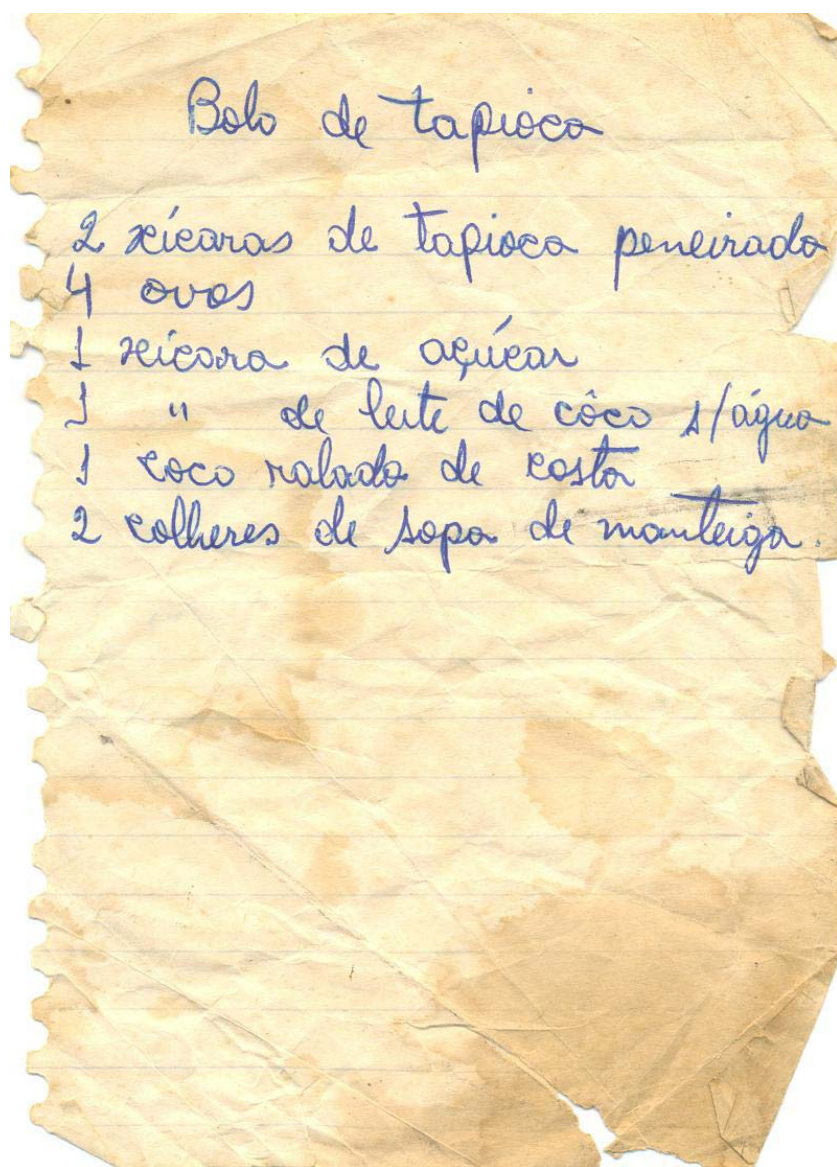 Bolo de tapioca
2 xícaras de tapioca peneirada
4 ovos
1 xícara de açúcar
1 " de leite de côco s/água
1 coco ralado de costa
2 colheres de sopa de manteiga.